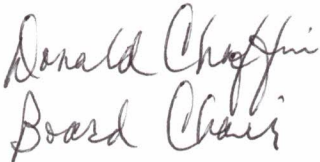 Donald Chaffin
Board Chair